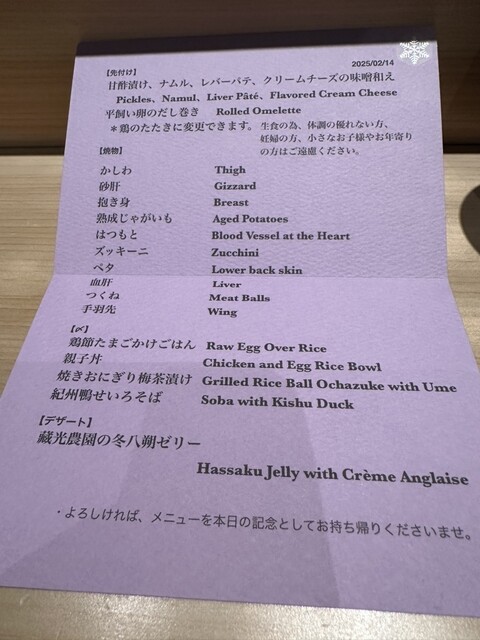 2025/02/14
【先付け】
甘酢漬け、ナムル、レバーパテ、クリームチーズの味噌和え
Pickles、Namul、Liver Pâté、Flavored Cream Cheese
平飼い卵のだし巻き Rolled Omelette
＊鶏のたたきに変更できます。 生食の為、体調の優れない方、
妊婦の方、小さなお子様やお年寄り
の方はご遠慮ください。
【焼物】
かしわ Thigh
砂肝 Gizzard
抱き身 Breast
熟成じゃがいも Aged Potatoes
はつもと Blood Vessel at the Heart
ズッキーニ Zucchini
ペタ Lower back skin
血肝 Liver
つくね Meat Balls
手羽先 Wing
【〆】
鶏節たまごかけごはん Raw Egg Over Rice
親子丼 Chicken and Egg Rice Bowl
焼きおにぎり梅茶漬け Grilled Rice Ball Ochazuke with Ume
紀州鴨せいろそば Soba with Kishu Duck
【デザート】
藏光農園の冬八朔ゼリー
Hassaku Jelly with Crème Anglaise
・よろしければ、メニューを本日の記念としてお持ち帰りくださいませ。